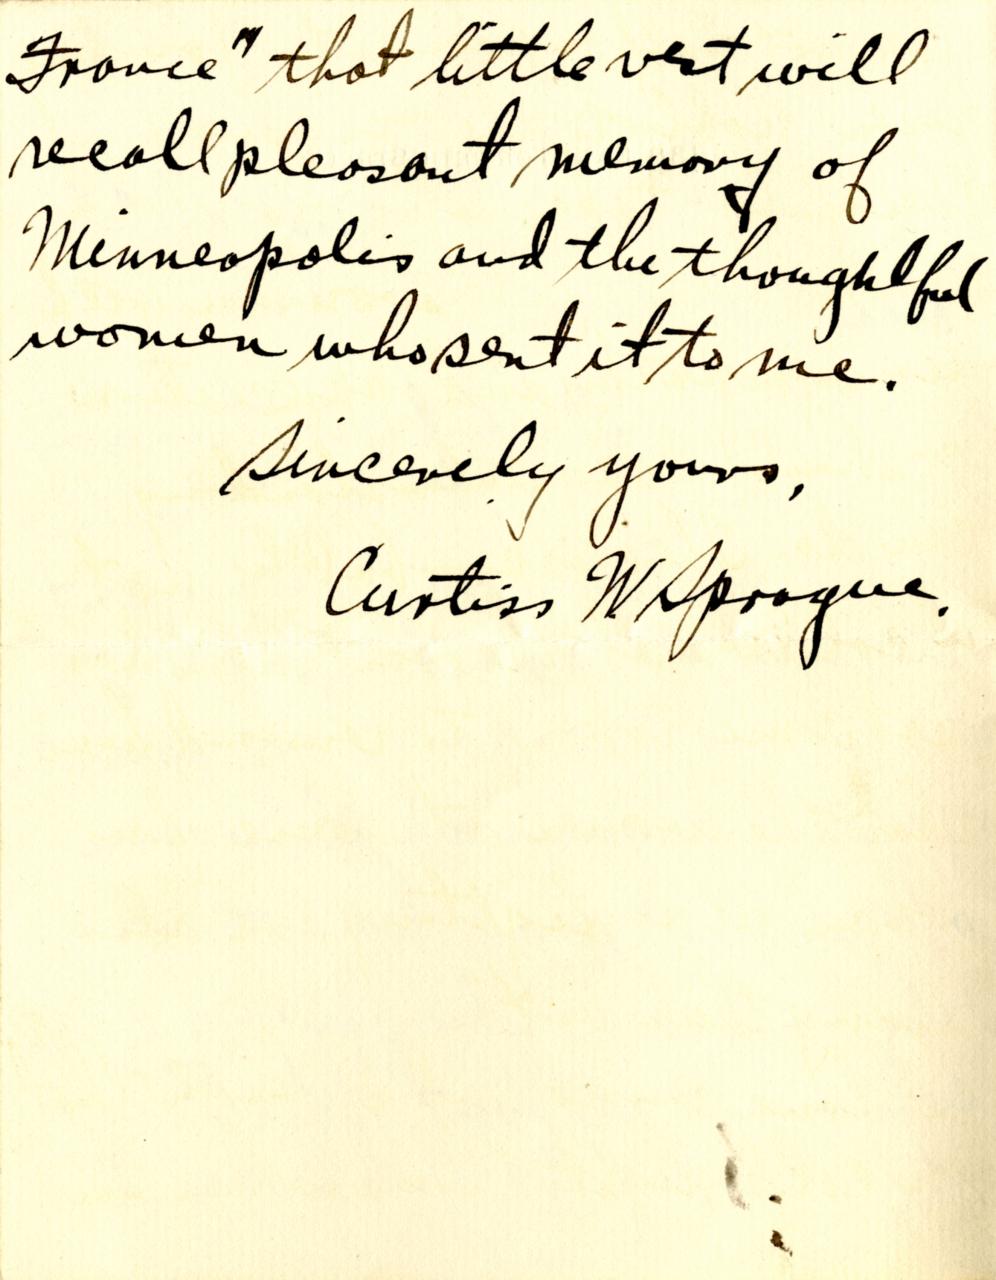 France" that little vest will
recall pleasant memory of
Minneapolis and the thoughtful
women who sent it to me.
Sincerely yours,
Curtiss W Sprague.